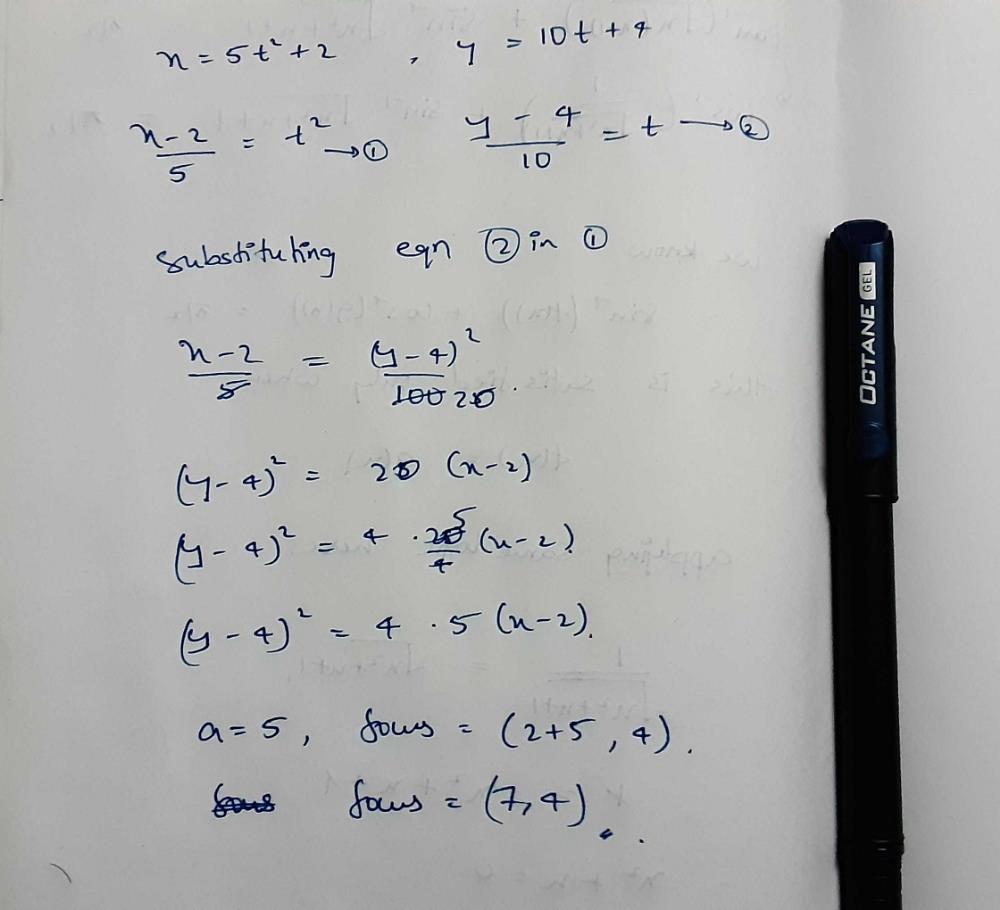 x = 5t² + 2 , y = 10t + 4
x-2/5 = t² → ① y - 4/10 = t → ②
substituting eqn ② in ①
x-2/5 = (y-4)²/100 20 .
(y-4)² = 20 (x-2)
(y-4)² = 4 · 20/4 5 (x-2).
(y-4)² = 4 · 5 (x-2).
a = 5, focus = (2+5, 4).
focus focus = (7,4).
OCTANE GEL